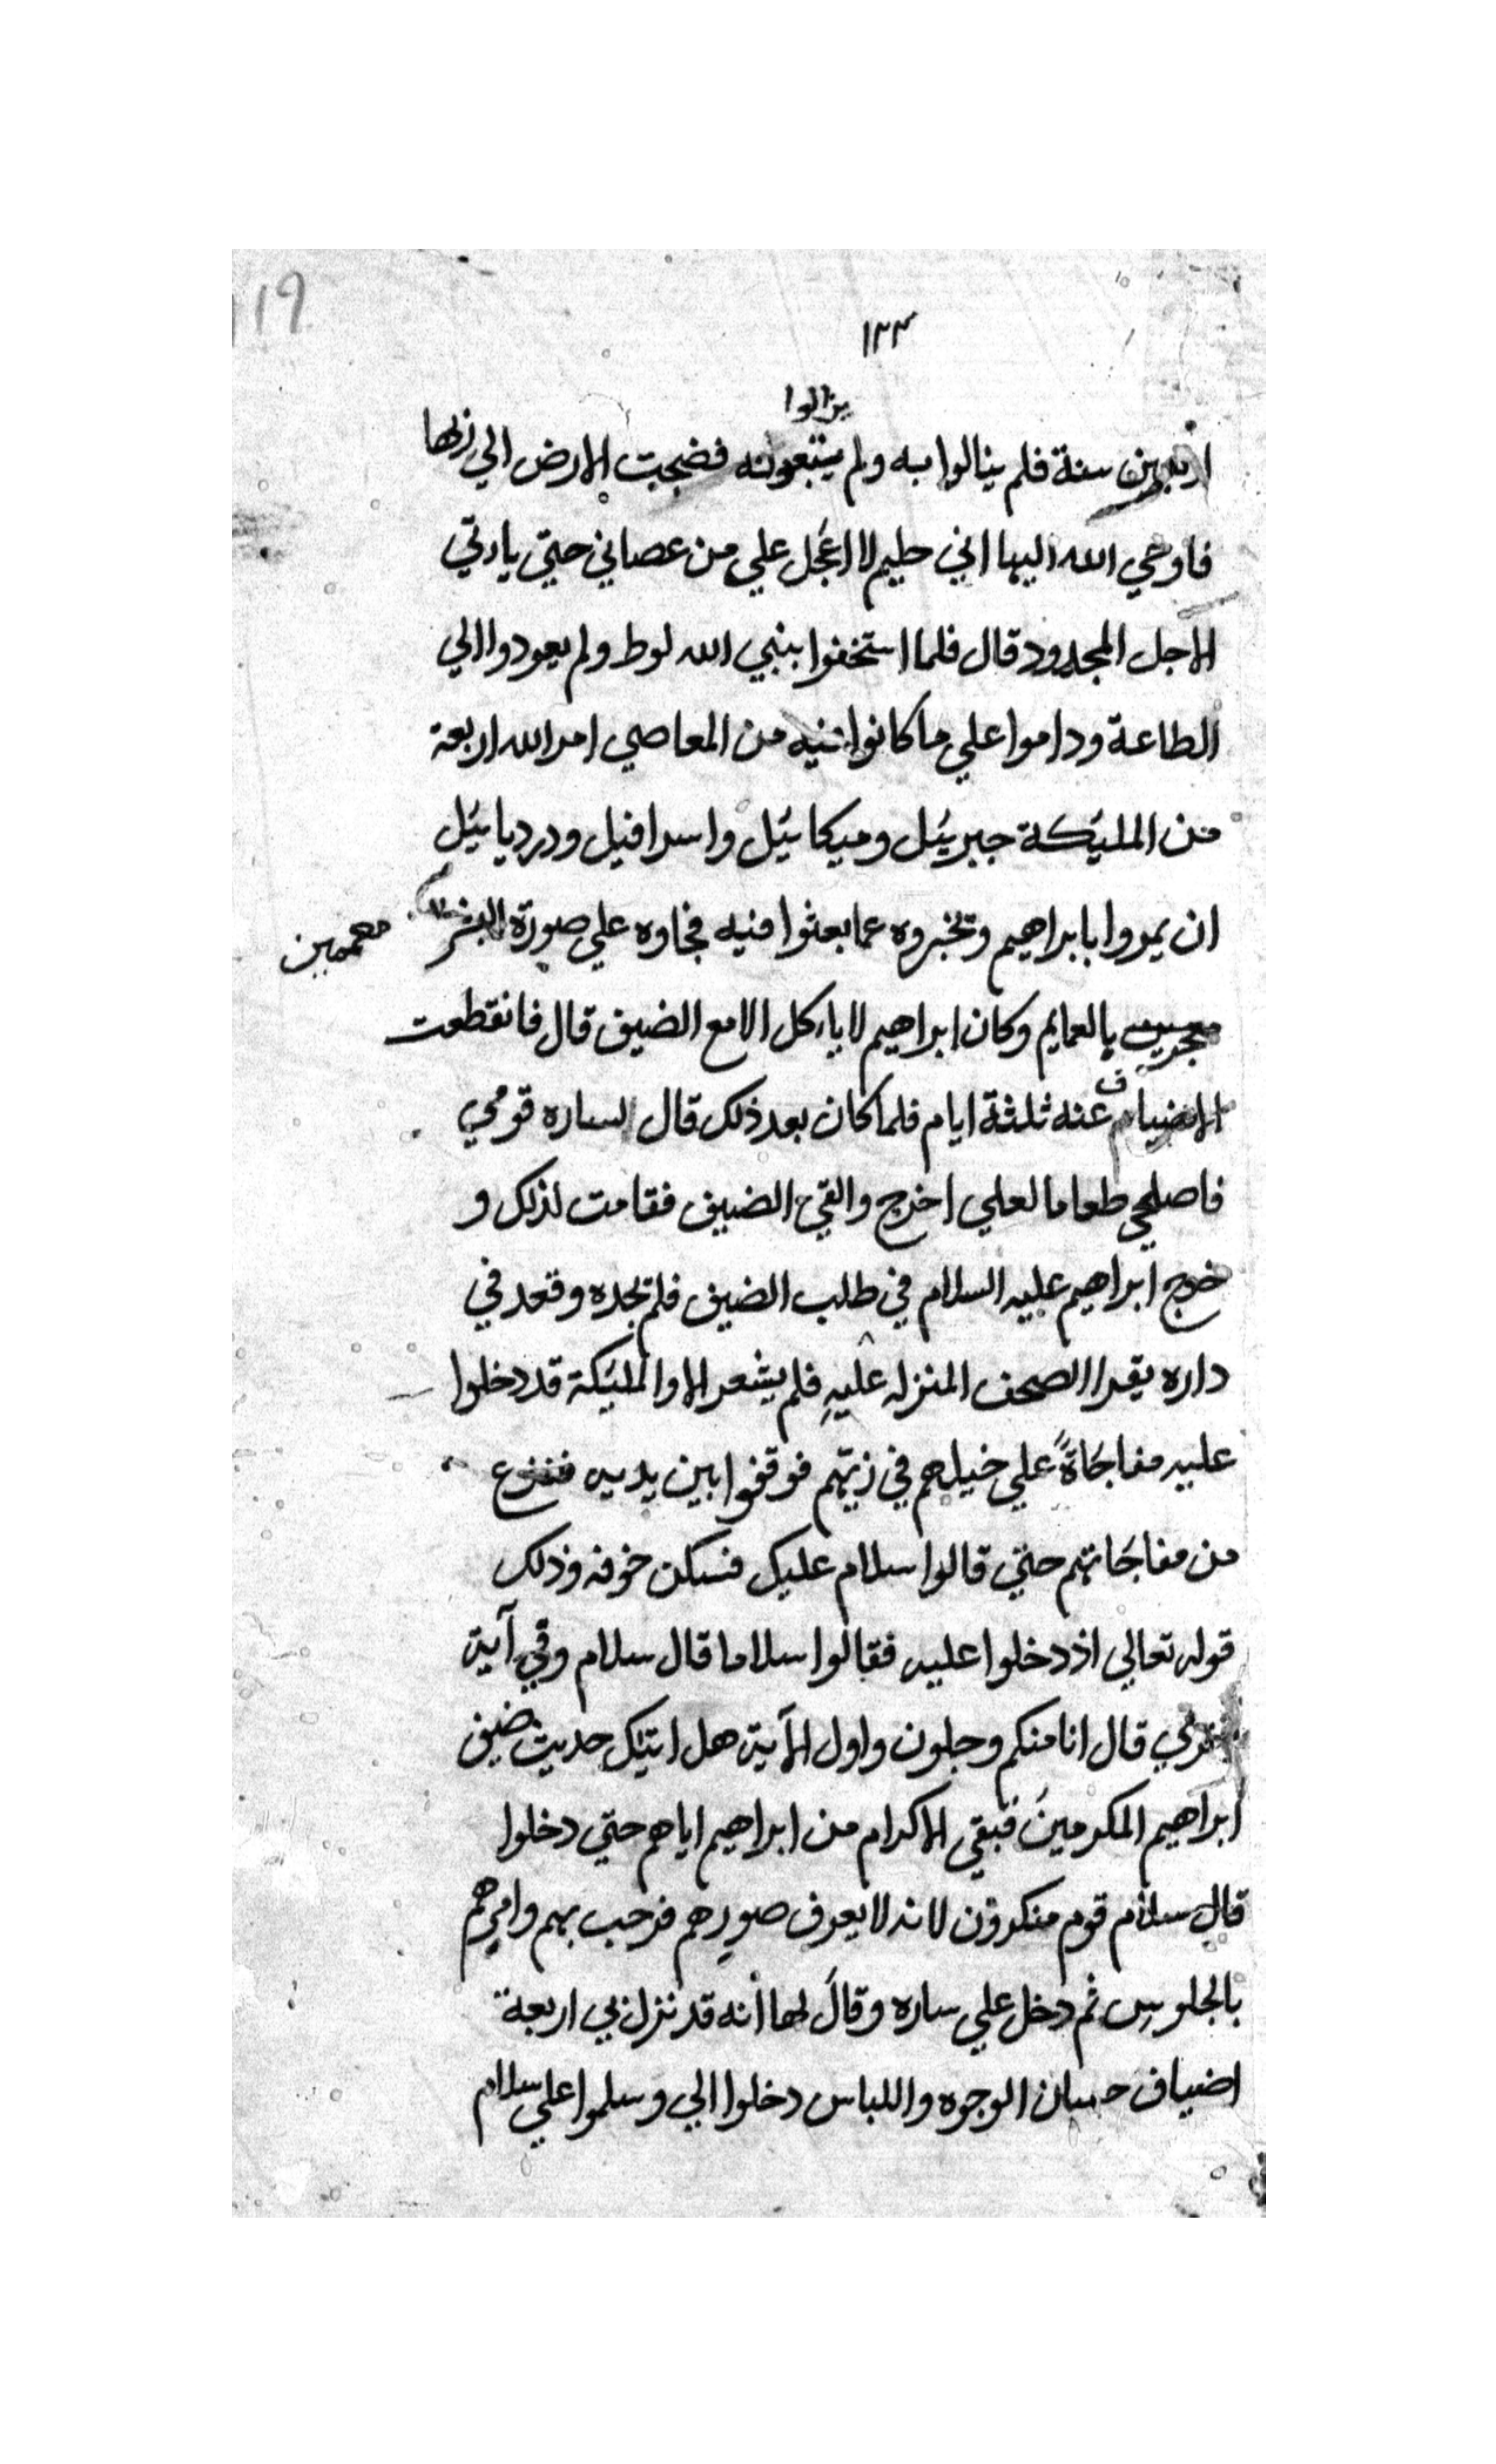 119
١٣٣
يزالوا
اربعين سنة فلم ينالوا به ولم يتبعونه فضجت الارض الي ربها
فاوحي الله اليها اني حليم لا اعَجل علي من عصاني حتي ياتي
الاجل المحدود قال فلما استخفوا بنبي الله لوط ولم يعودوا الي
الطاعة وداموا علي ما كانوا فيه من المعاصي امر الله اربعة
من المليكة جبرييل وميكاييل واسرافيل ودردياييل
ان يمروا بابراهيم وتخبروه عما بعثوا فيه فجاوه علي صورة البشر
معممين
بالعمايم وكان ابراهيم لا ياركل الا مع الضيف قال فانقطعت
الاضياف عنه ثلثة ايام فلما كان بعد ذلك قال لساره قومي
فاصلحي طعاما لعلي اخرج والقي الضيف فقامت لذلك و
خرج ابراهيم عليه السلام في طلب الضيف فلم تجده وقعد في
داره يقرا الصحف المنزله عليهِ فلم يشعر الا والمليكة قد دخلوا
عليه مفاجَاةً علي خيلهم في زيّهم فوقفوا بين يديه ففزع
من مفاجَاتهم حتي قالوا سلام عليك فسكن خوفه وذلك
قوله تعالي اذ دخلوا عليه فقالوا سلاما قال سلام وفي آية
اخري قال انا منكم وجلون واول الآية هل اتيك حديث ضيف
ابراهيم المكرمينَ فبقي الاكرام من ابراهيم اياهم حتي دخلوا
قال سلام قوم منكرون لانه لا يعرف صورهم فرحب بهم وامرهم
بالجلوس ثم دخل علي ساره وقالَ لها انه قد نزل بي اربعة
اضياف حسان الوجوه واللباس دخلوا الي وسلموا علي سلام